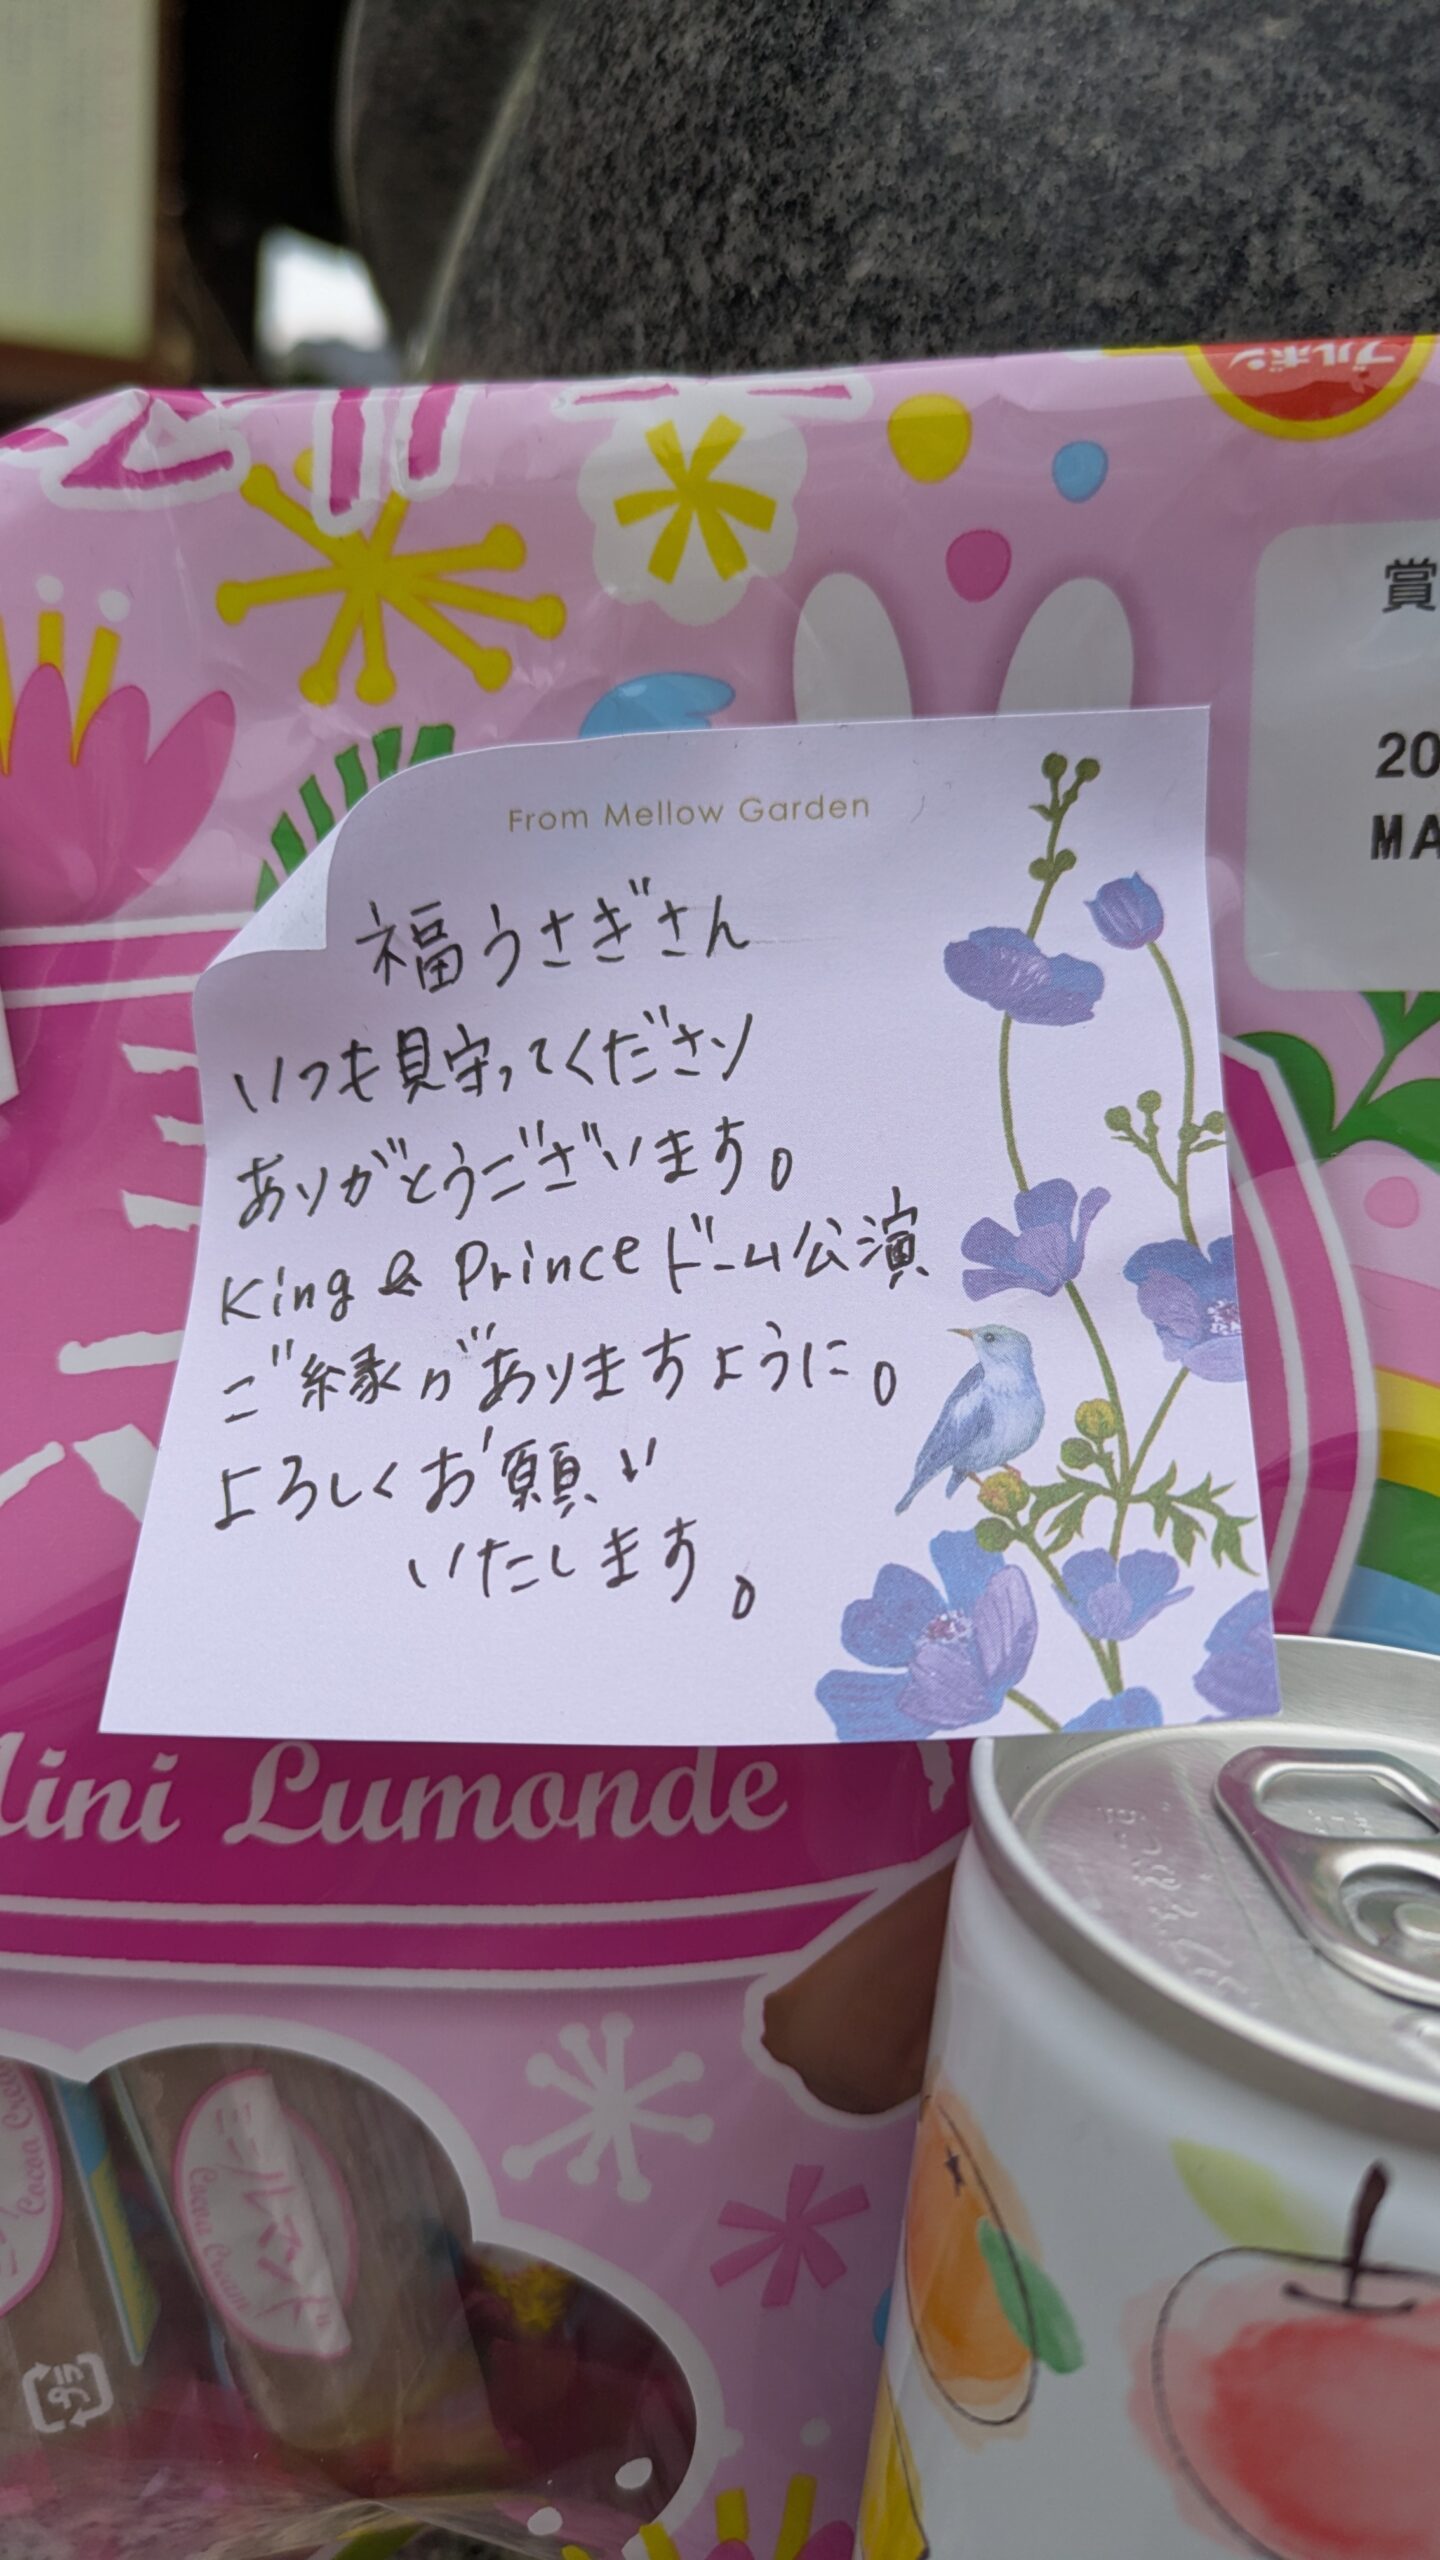 ブルボン
賞
20
MA
From Mellow Garden
福うさぎさん
いつも見守ってくださり
ありがとうございます。
King & Prince ドーム公演
ご縁がありますように。
よろしくお願い
いたします。
ini Lumonde
ルマンド
Cocoa Cream